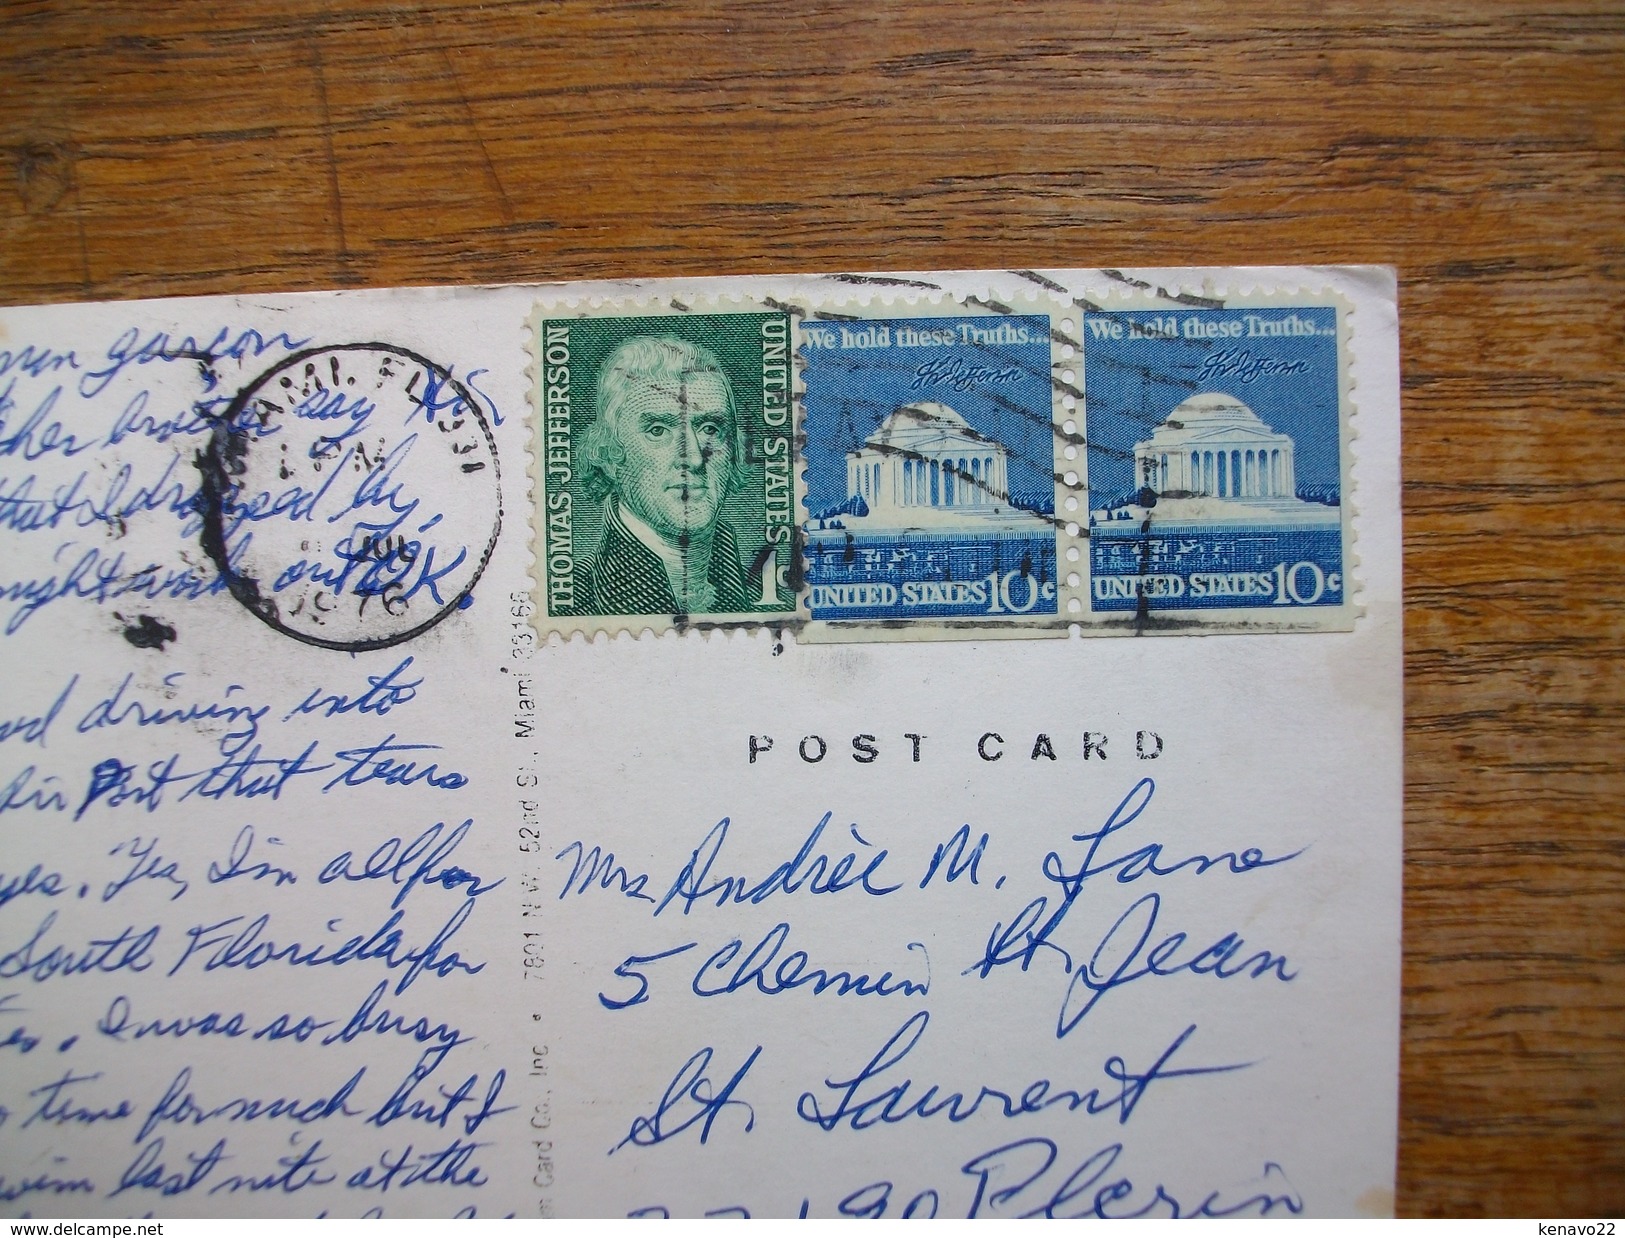 garcon
brother say
that I dropped by
night work out O.K.
driving into
Air Post that tears
yes. Yes, I'm all for
South Florida for
I was so busy
time for much but I
swim last nite at the
MIAMI, FL 331
PM
JUL
1976
THOMAS JEFFERSON
UNITED STATES
1c
We hold these Truths...
Th Jefferson
UNITED STATES 10c
We hold these Truths...
Th Jefferson
UNITED STATES 10c
Card Co., Inc. • 7801 N.W. 52nd St., Miami 33166
POST CARD
Mrs Andrée M. Lane
5 Chemin St. Jean
St. Laurent
22190 Plerin
www.delcampe.net
kenavo22